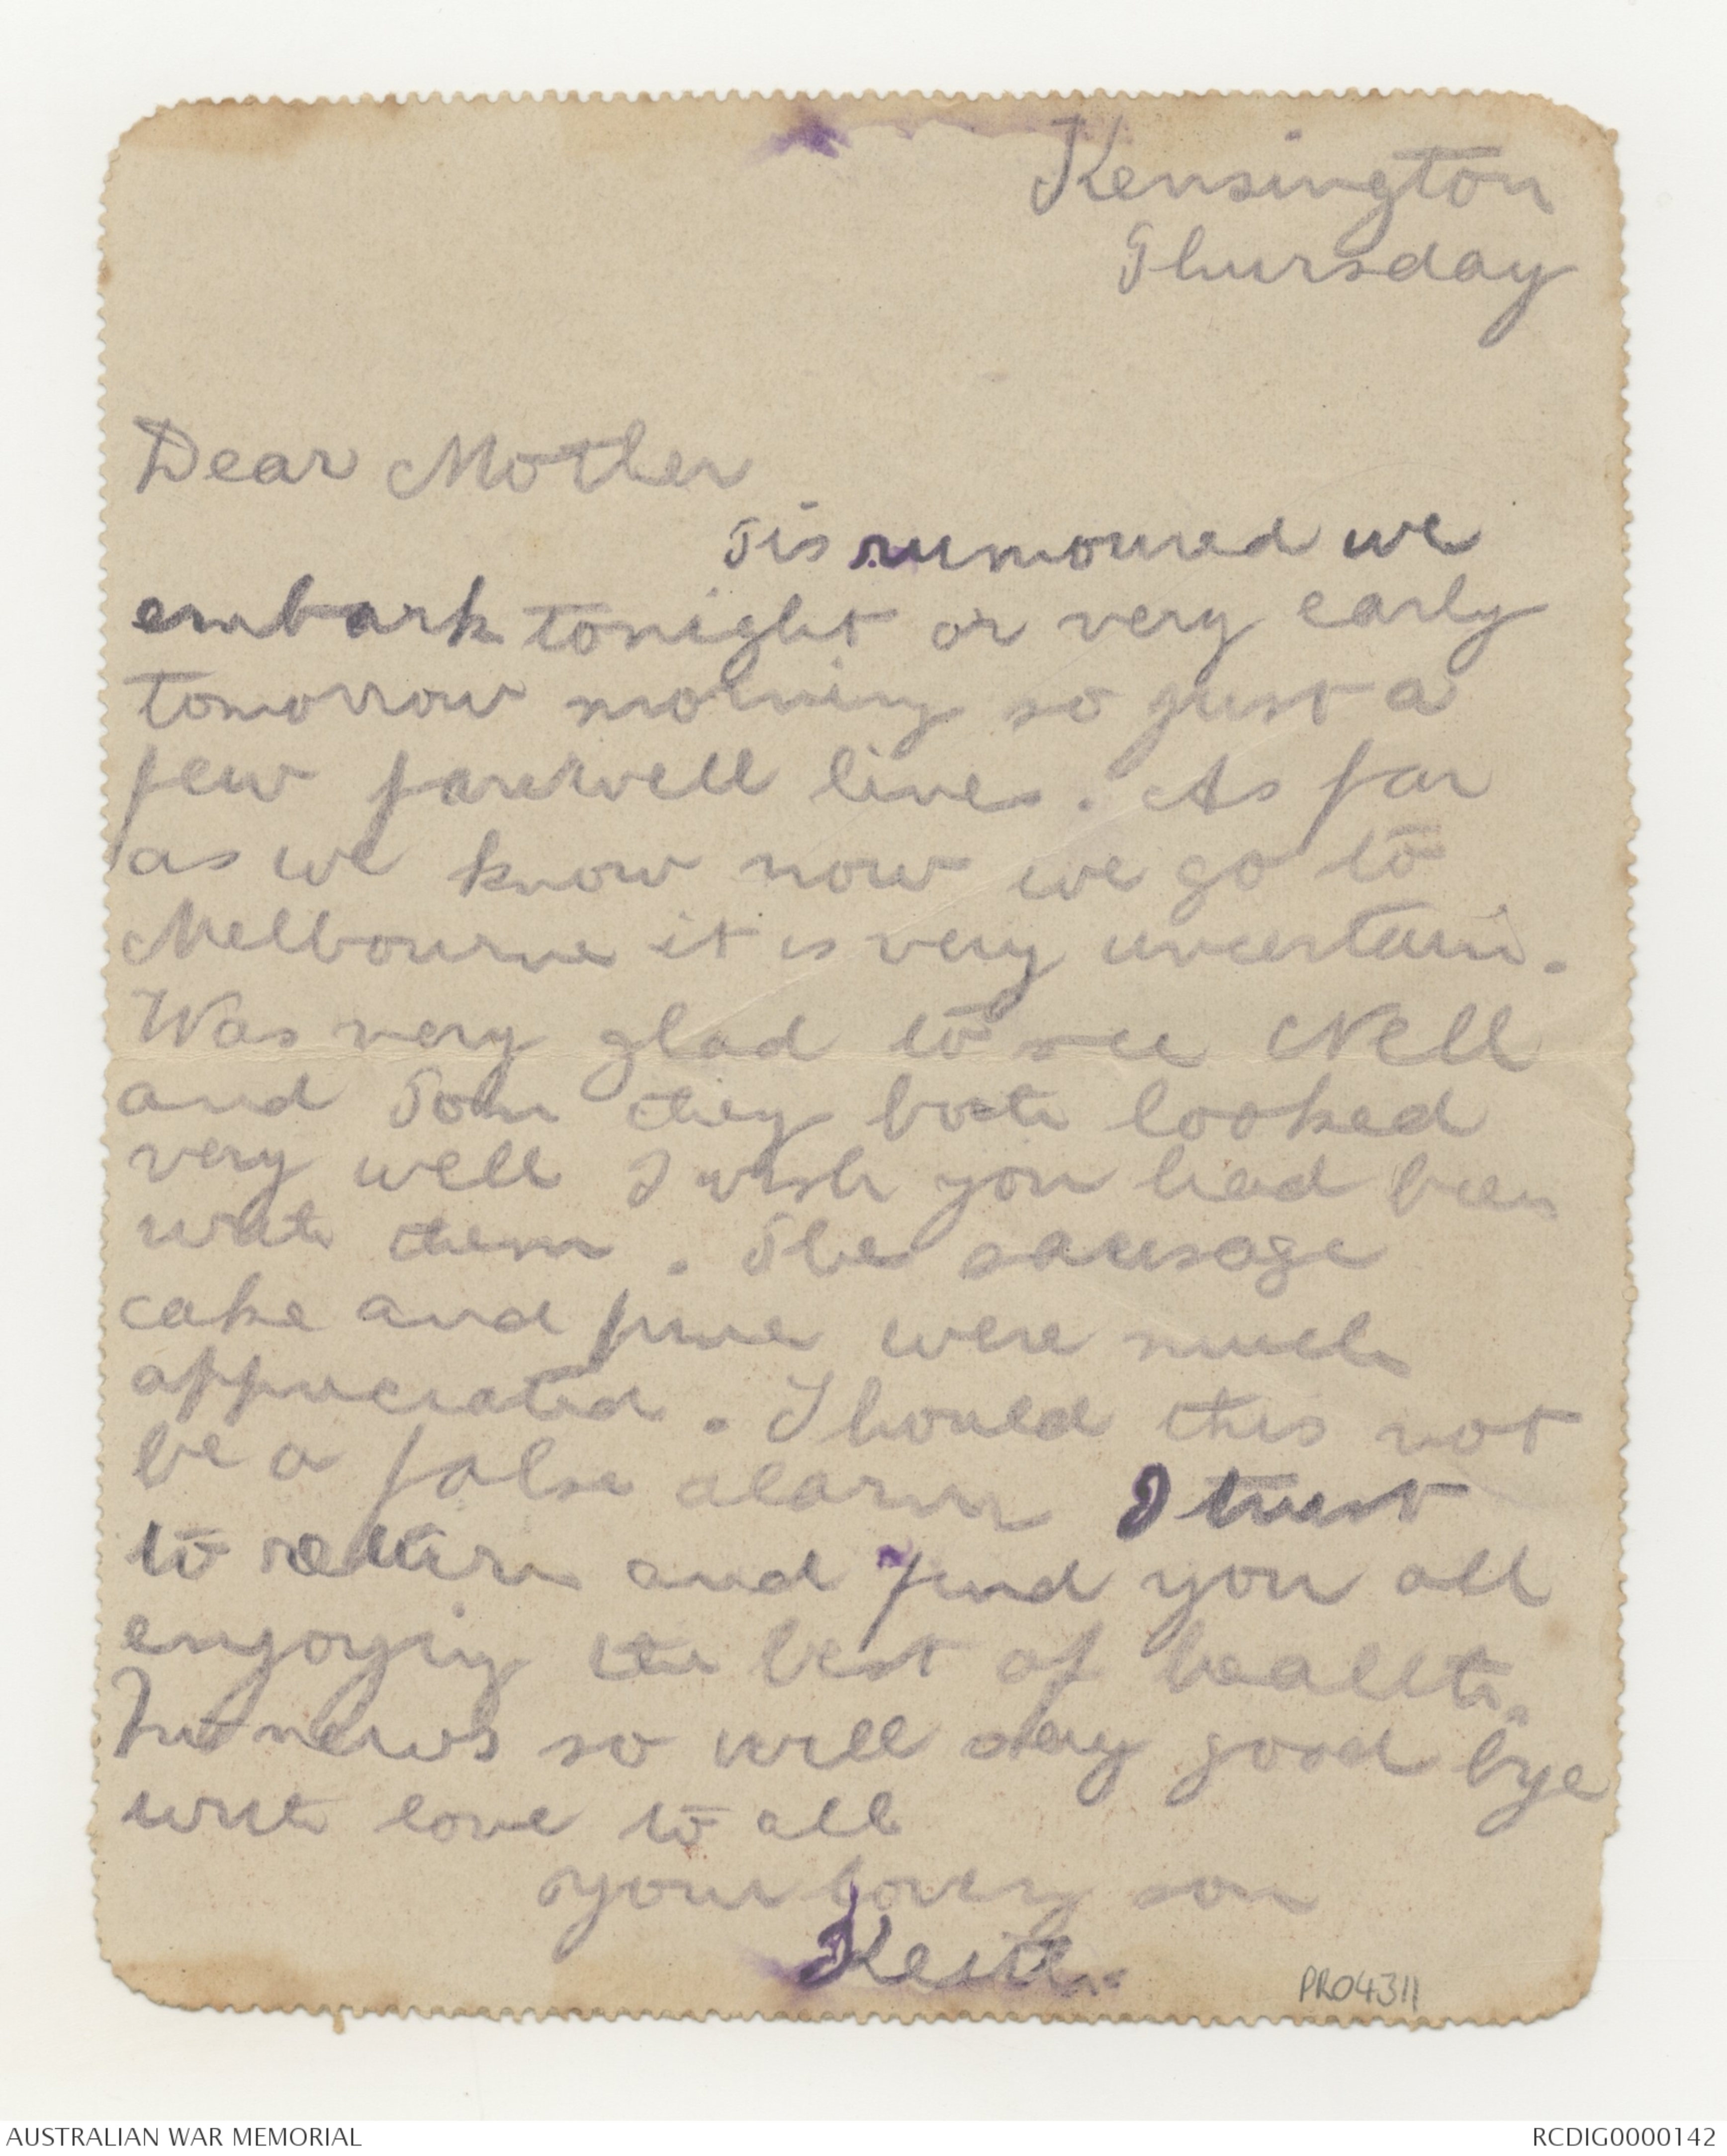 Kensington
Thursday
Dear Mother
Tis rumoured we
embark tonight or very early
tomorrow morning so just a
few farewell lines. As far
as we know now we go to
Melbourne it is very uncertain.
Was very glad to see Nell
and Tom they both looked
very well I wish you had been
with them. The sausage
cake and pine were much
appreciated. Should this not
be a false alarm I trust
to return and find you all
enjoying the best of health.
No news so will say good bye
with love to all
your loving son
Keith.
PR04311
AUSTRALIAN WAR MEMORIAL
RCDIG0000142